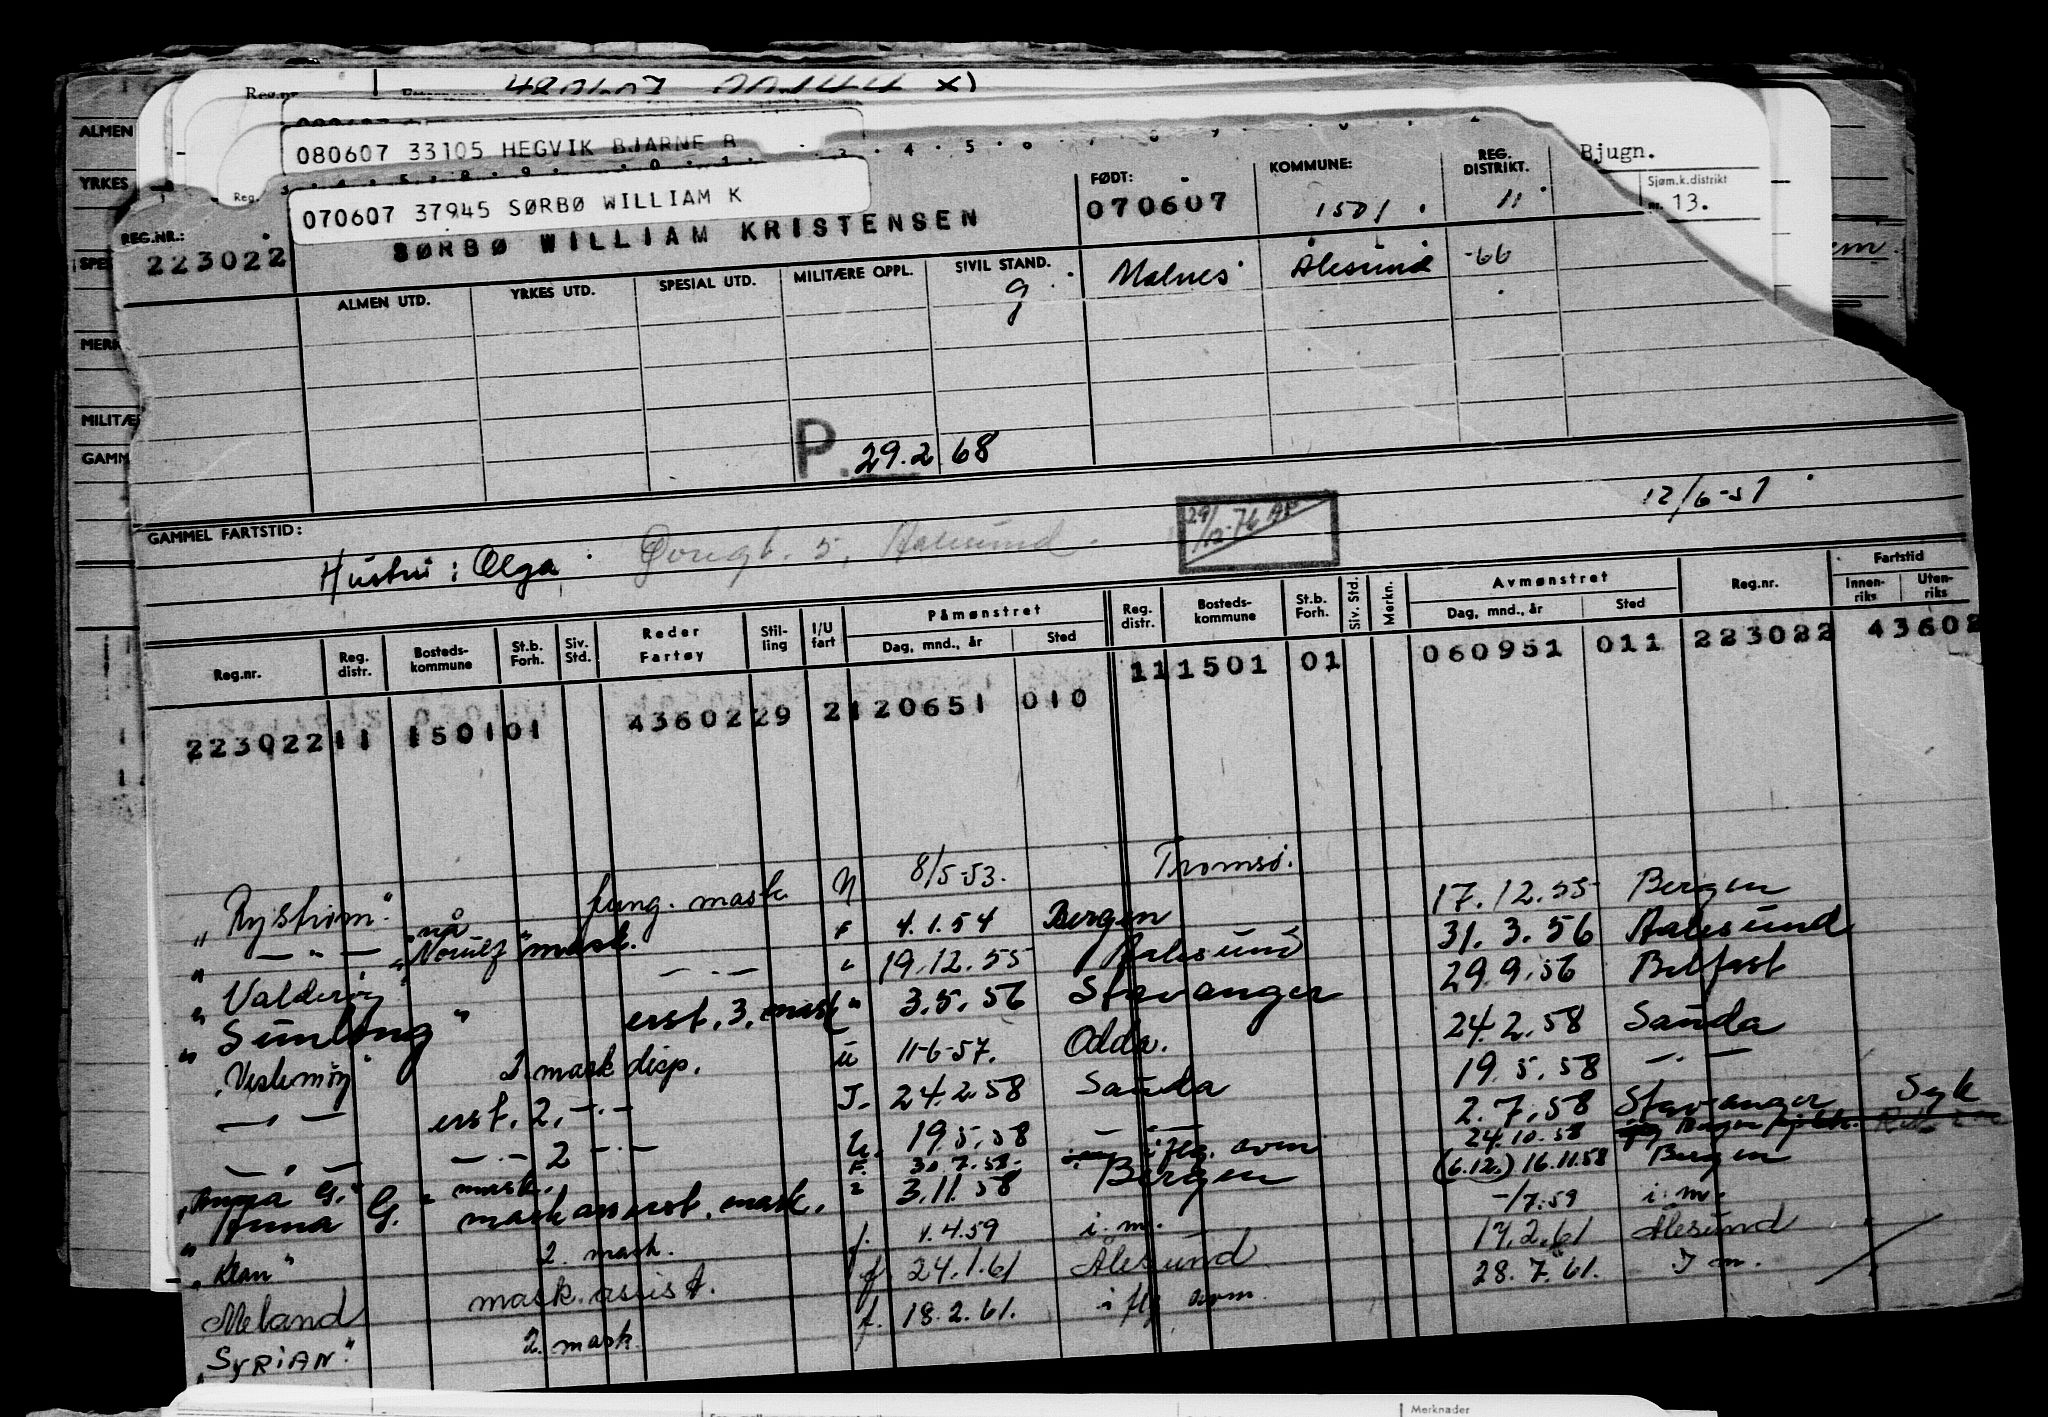 Reg.nr.
080607 33105 HEGVIK BJARNE
070607 37945 SØRBØ WILLIAM K
Bjugn.
Sjøm.k.distrikt
nr. 13.
ALMEN
YRKES
MILITÆ
GAMM
REG.NR.:
223022
SØRBØ WILLIAM KRISTENSEN
FØDT:
070607
KOMMUNE:
1501
REG. DISTRIKT.
11
ALMEN UTD.
YRKES UTD.
SPESIAL UTD.
MILITÆRE OPPL.
SIVIL STAND.
g
Ålesund -66
P. 29.2.68
GAMMEL FARTSTID:
12/6-51
Hustru: Olga
5, Aalesund.
Reg.nr.
Reg. distr.
Bosteds-kommune
St.b. Forh.
Siv. Std.
Reder Fartøy
Stil-ling
I/U fart
Påmønstret
Dag, mnd., år
Sted
Reg. distr.
Bosteds-kommune
St.b. Forh.
Siv. Std.
Merkn.
Avmønstret
Dag, mnd., år
Sted
Reg.nr.
Fartstid
Innen-riks
Uten-riks
223022 11 1501 01 43602 29 2 120651 010 11 1501 01 060951 011 223022 43602
"Rystrøm" fung. mask N 8/5-53. Tromsø.
" — " — nå "Norulf" mask. F 4.1.54 Bergen 17.12.55 Bergen
"Valderøy — . — " 19.12.55 Aalesund 31.3.56 Aalesund
"Sunlong" erst. 3. mask " 3.5.56 Stavanger 29.9.56 Belfast
"Vestemøy" 2. mask disp. u 11-6-57. Odda. 24.2.58 Sauda
— " — erst. 2. — . — I. 24.2.58 Sauda 19.5.58 — . —
— " — — . — 2 — . — U. 19.5.58 — — 2.7.58 Stavanger Syk
"Anna G." mask. F. 30.7.58. iflg. avm 24.10.58
"Anna G." mask ass erst. mask. 3.11.58 Bergen (6.12.) 16.11.58 Bergen
"Klan" 2. mask. f. 1.4.59 i. m. -/7.59 i. m.
Meland mask. assist. f. 24.1.61 Ålesund 17.2.61 Ålesund
"SYRIAN" 2. mask. f. 18.2.61. i flg avm. 28.7.61. I m.
Merknader